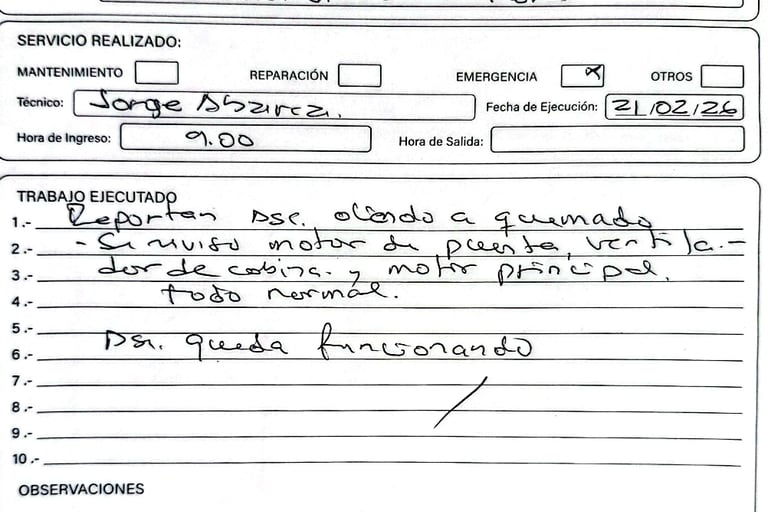 SERVICIO REALIZADO:
MANTENIMIENTO REPARACIÓN EMERGENCIA X OTROS
Técnico: Jorge Abarca. Fecha de Ejecución: 21/02/26
Hora de Ingreso: 9.00 Hora de Salida:
TRABAJO EJECUTADO
1.- Reportan Asc. oliendo a quemado
2.- - Se reviso motor de puerta, ventila.-
3.- dor de cabina. y motor principal.
4.- todo normal.
5.-
6.- Asc. queda funcionando
7.-
8.-
9.-
10.-
OBSERVACIONES